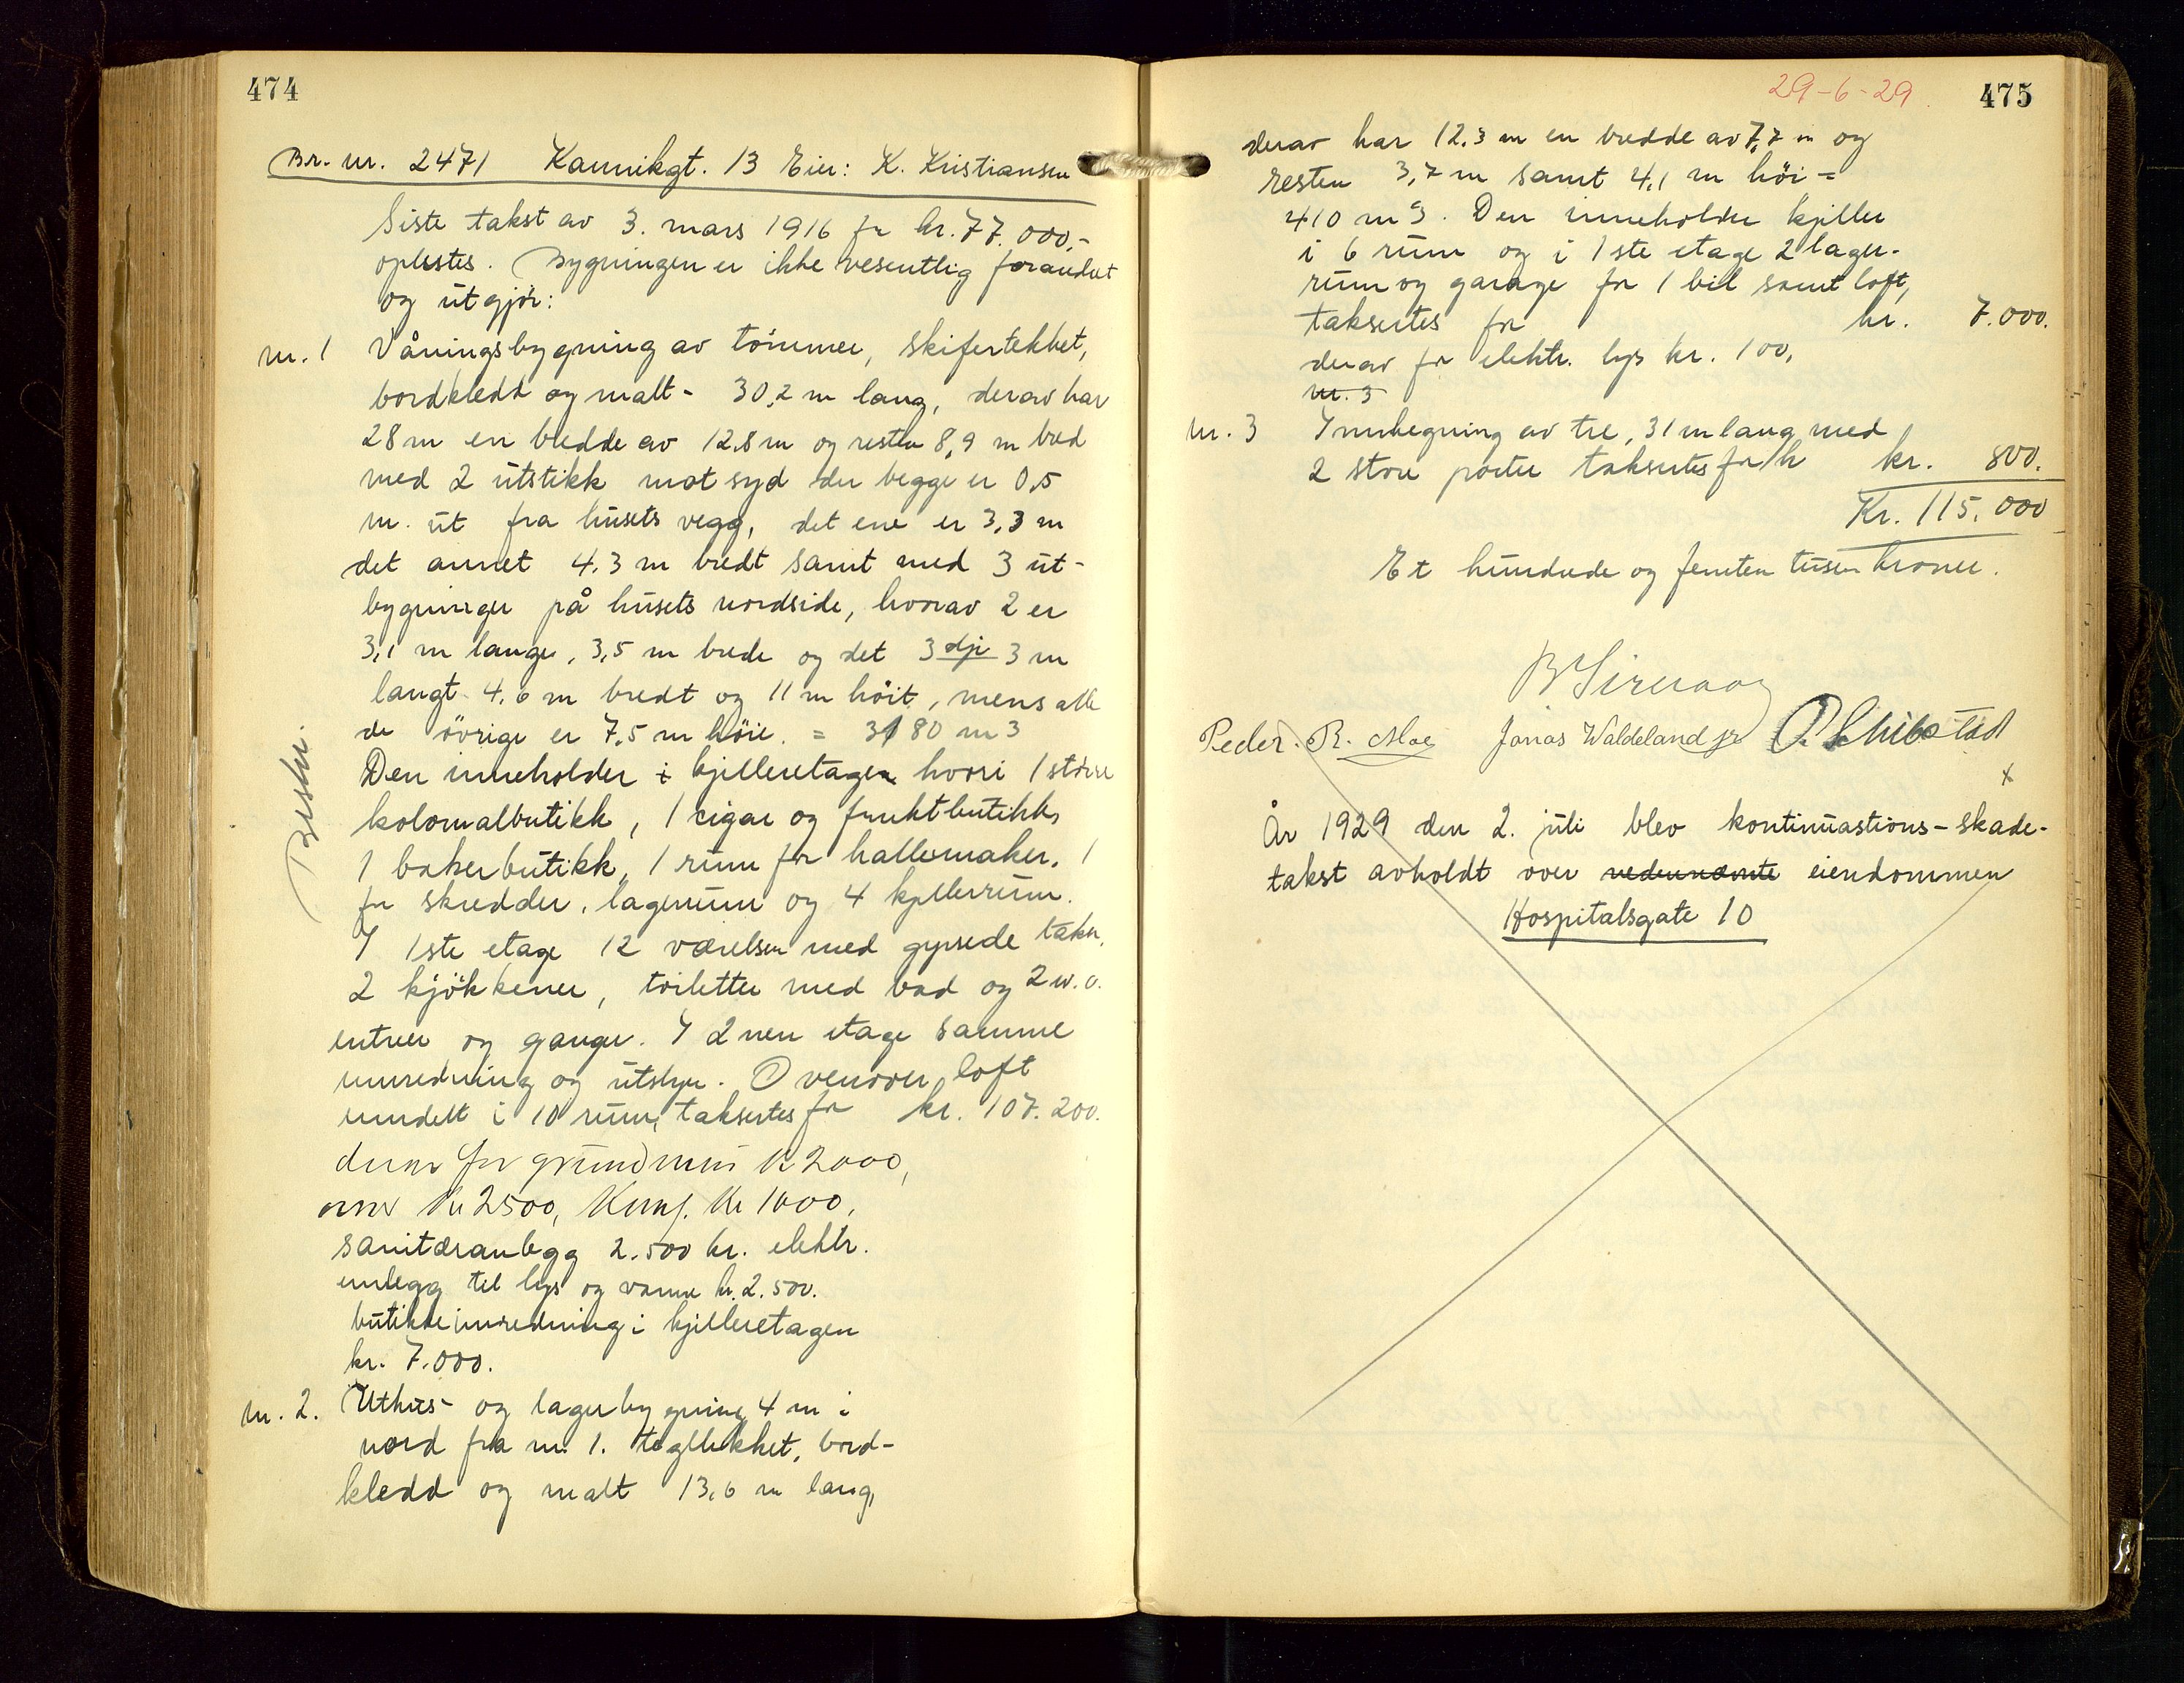 474
Br. nr. 2471 Kannikgt. 13 Eier: K. Kristiansen
Siste takst av 3. mars 1916 fr kr. 77.000,-
oplestes. Bygningen er ikke vesentlig forandret
og utgjør:
nr. 1 Våningsbygning av tømmer, skifertekket,
bordkledd og malt - 30,2 m lang, derav har
28 m en bredde av 12,8 m og resten 8,9 m bred
med 2 utstikk mot syd der begge er 0,5
m. ut fra husets vegg, det ene er 3,3 m
det annet 4,3 m bredt samt med 3 ut-
bygninger på husets nordside, hvorav 2 er
3,1 m lange, 3,5 m brede og det 3dje 3 m
langt 4,6 m bredt og 11 m höit, mens alle
de övrige er 7,5 m höie. = 3180 m3
Bestyr.
Den inneholder i kjelleretagen hvori 1 större
kolonialbutikk, 1 cigar og fruktbutikk,
1 bakerbutikk, 1 rum for hattemaker, 1
for skredder, lagerrum og 4 kjellerrum.
I 1ste etage 12 værelser med gipsede taker,
2 kjökkener, toiletter med bad og 2 w.c.
entreer og ganger. I 2nen etage samme
innredning og utstyr. Ovenover loft
inndelt i 10 rum, takseres for kr. 107.200.
derav for grundmur kr 2000,
ovner kr 2500, Komf. kr 1000,
sanitæranlegg 2.500 kr. elektr.
innlegg til lys og varme kr. 2.500.
butikkinnredning i kjelleretagen
kr. 7.000.
nr. 2. Uthus- og lagerbygning 4 m i
nord fra nr. 1. tegltekket, bord-
kledd og malt 13,6 m lang,
29-6-29. 475
derav har 12,3 m en bredde av 7,7 m og
resten 3,7 m samt 4,1 m höi =
410 m3. Den inneholder kjeller
i 6 rum og i 1ste etage 2 lager-
rum og garage for 1 bil samt loft,
taksertes for kr. 7.000.
derav for elektr. lys kr. 100,
nr. 3
nr. 3 Innhegning av tre, 31 m lang med
2 store porter taksertes for kr. 800.
Kr. 115.000
Et hundrede og femten tusen kroner.
Peder. R. Moe Jonas Waldeland jr O. Schibsted
x
År 1929 den 2. juli blev kontinuastions-skade-
takst avholdt over nedennevnte eiendommen
Hospitalsgate 10